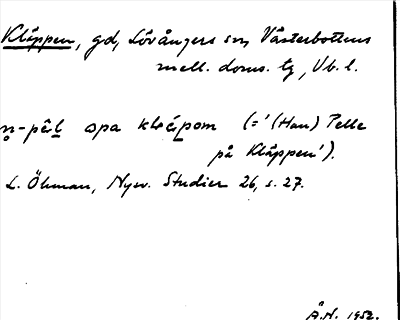 Kläppen, gd, Lövångers sn, Västerbottens
mell. doms. tg, Vb. l.
n-pêl opa kläpom (=' (Han) Pelle
på Kläppen').
L. Öhman, Nysv. Studier 26, s. 27.
Å.N. 1952.